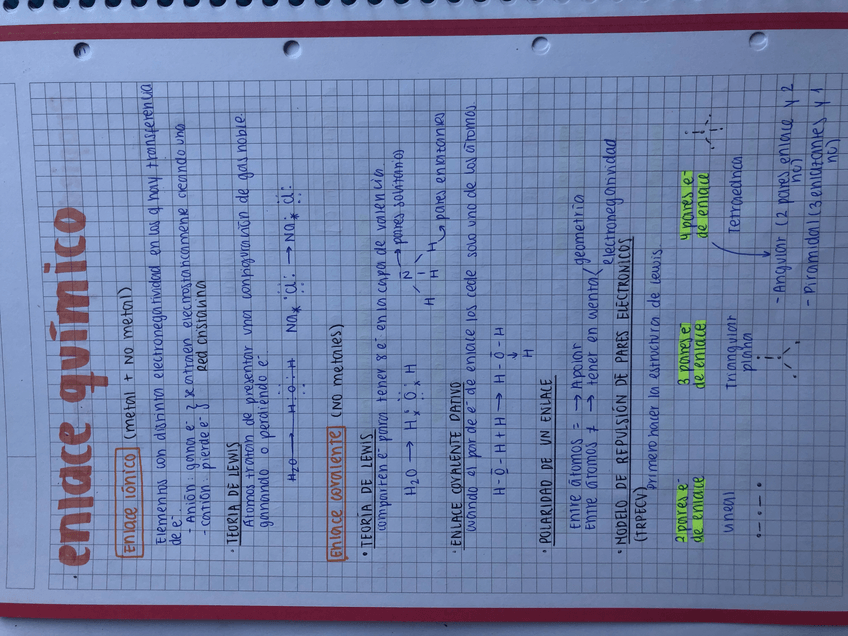 enlace químico
Enlace iónico (metal + no metal)
Elementos con distinta electronegatividad en los q hay transferencia
de e⁻.
- Anión: gana e⁻ } se atraen electrostaticamente creando una
- catión: pierde e⁻ } Red cristalina
· TEORIA DE LEWIS
Átomos tratan de presentar una configuración de gas noble.
ganando o perdiendo e⁻
H₂O → H-O-H Na Cl: → Na Cl:
Enlace covalente (NO metales)
· TEORIA DE LEWIS
comparten e⁻ para tener 8 e⁻ en la capa de valencia
H₂O → H O H
N → pares solitarios
H H H
→ pares enlazantes
· ENLACE COVALENTE DATIVO
cuando el par de e⁻ de enlace los cede solo uno de los átomos.
H-O-H + H → H-O-H
H
· POLARIDAD DE UN ENLACE
Entre átomos = → Apolar
Entre átomos ≠ → tener en cuenta < geometría
electronegatividad
· MODELO DE REPULSIÓN DE PARES ELECTRONICOS
(TRPECV) Primero hacer la estructura de Lewis
2 pares e⁻
de enlace
lineal
3 pares e⁻
de enlace
Triangular
plana
4 pares e⁻
de enlace
Tetraédrica
- Angular (2 pares enlace y 2
no)
- Piramidal (3 enlazantes y 1
no)